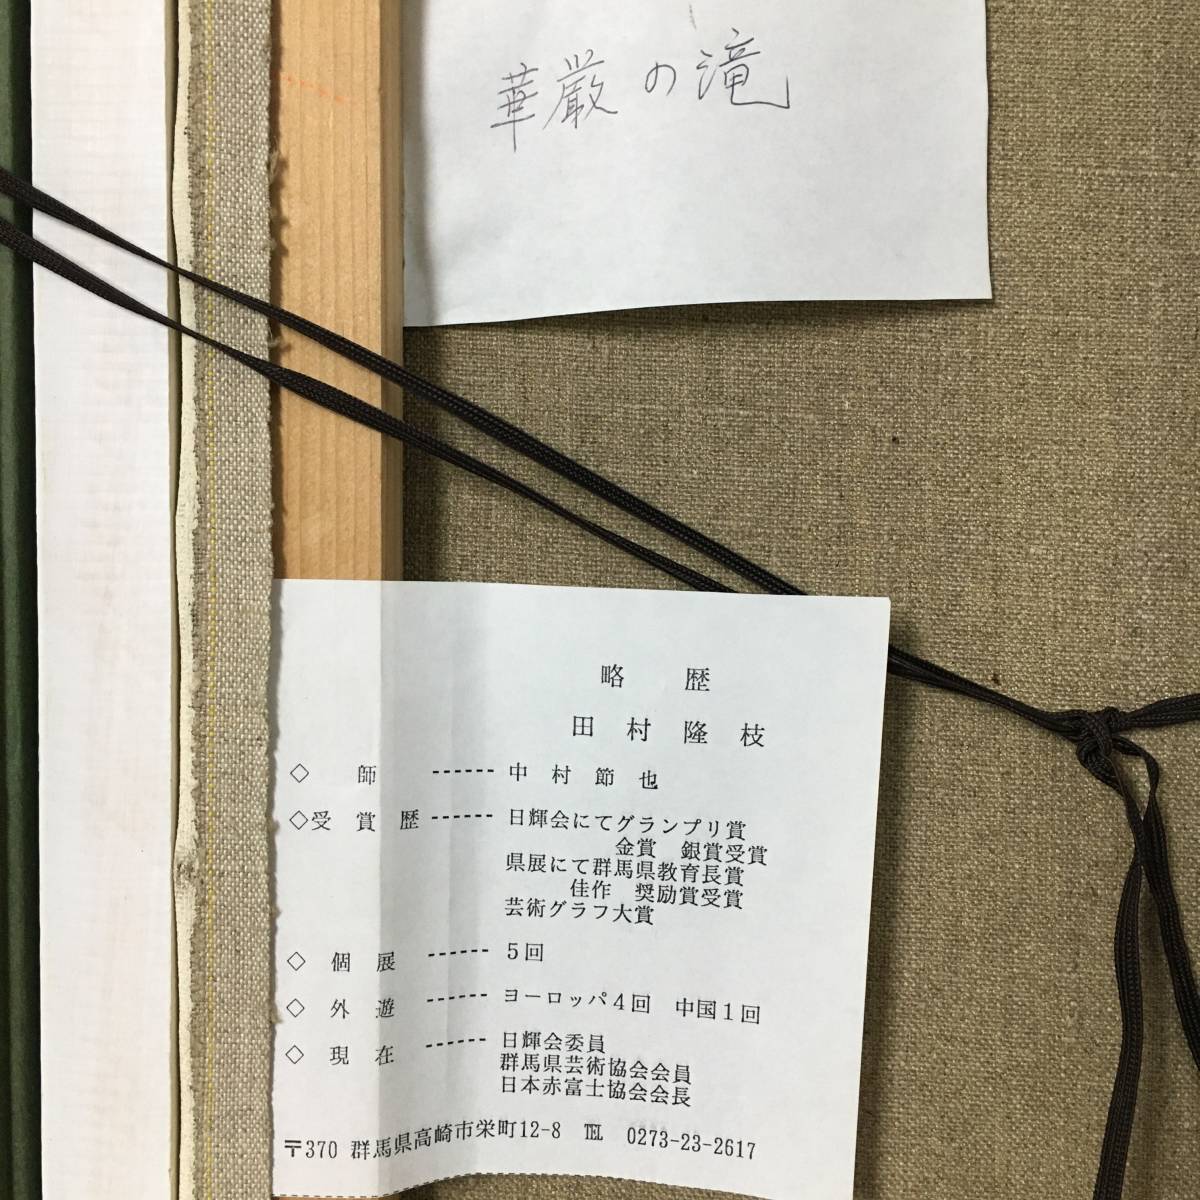 華厳の滝
略 歴
田 村 隆 枝
◇ 師 ------ 中 村 節 也
◇受 賞 歴 ------ 日輝会にてグランプリ賞
金賞 銀賞受賞
県展にて群馬県教育長賞
佳作 奨励賞受賞
芸術グラフ大賞
◇ 個 展 ------ 5回
◇ 外 遊 ------ ヨーロッパ4回 中国1回
◇ 現 在 ------ 日輝会委員
群馬県芸術協会会員
日本赤富士協会会長
〒370 群馬県高崎市栄町12-8 ℡ 0273-23-2617